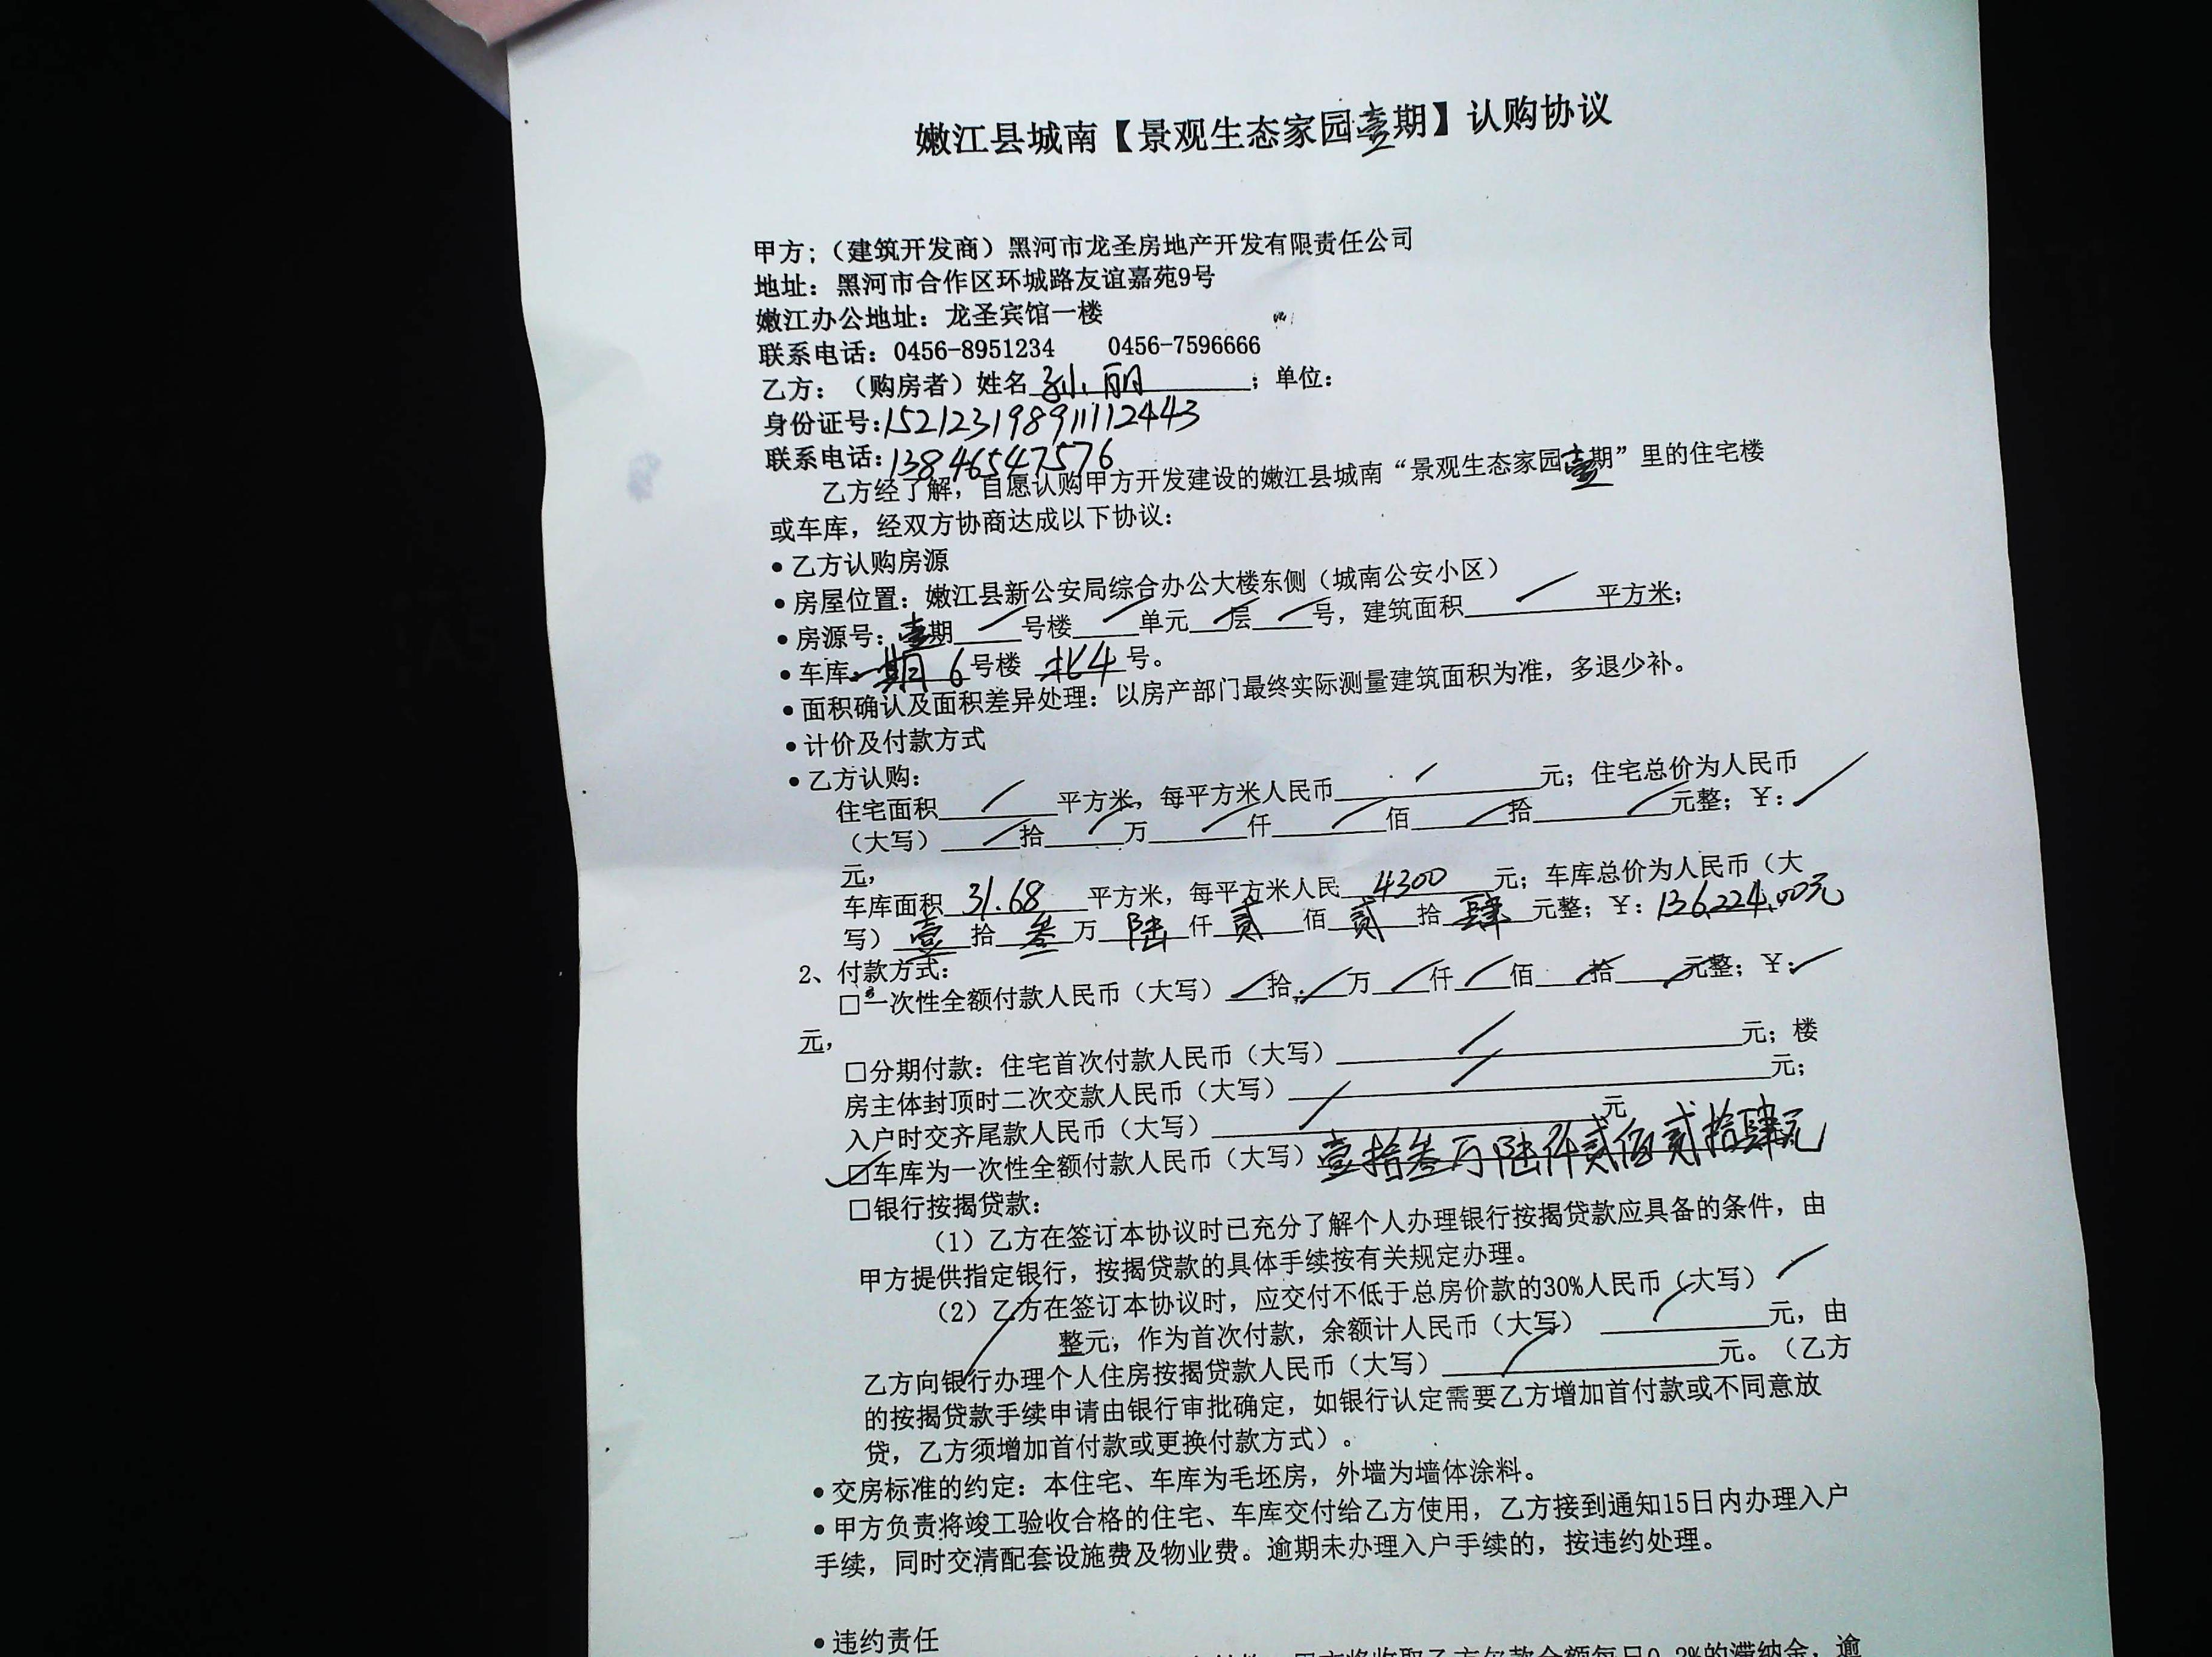 嫩江县城南【景观生态家园壹期】认购协议
甲方；（建筑开发商）黑河市龙圣房地产开发有限责任公司
地址：黑河市合作区环城路友谊嘉苑9号
嫩江办公地址：龙圣宾馆一楼
联系电话：0456-8951234 0456-7596666
乙方：（购房者）姓名 孙丽 ；单位：
身份证号：152123198911112443
联系电话：13846547576
乙方经了解，自愿认购甲方开发建设的嫩江县城南“景观生态家园壹期”里的住宅楼
或车库，经双方协商达成以下协议：
•乙方认购房源
•房屋位置：嫩江县新公安局综合办公大楼东侧（城南公安小区）
•房源号：壹期 / 号楼 / 单元 / 层 / 号，建筑面积 / 平方米；
•车库：一期 6 号楼 北4 号。
•面积确认及面积差异处理：以房产部门最终实际测量建筑面积为准，多退少补。
•计价及付款方式
•乙方认购：
住宅面积 / 平方米，每平方米人民币 / 元；住宅总价为人民币
（大写） / 拾 / 万 / 仟 / 佰 / 拾 / 元整；¥： /
元，
车库面积 31.68 平方米，每平方米人民 4300 元；车库总价为人民币（大
写） 壹 拾 叁 万 陆 仟 贰 佰 贰 拾 肆 元整；¥：136224.00元
2、付款方式：
□一次性全额付款人民币（大写） / 拾 / 万 / 仟 / 佰 / 拾 / 元整；¥： /
元，
□分期付款：住宅首次付款人民币（大写） / 元；楼
房主体封顶时二次交款人民币（大写） / 元；
入户时交齐尾款人民币（大写） / 元
☑车库为一次性全额付款人民币（大写）壹拾叁万陆仟贰佰贰拾肆元
□银行按揭贷款：
（1）乙方在签订本协议时已充分了解个人办理银行按揭贷款应具备的条件，由
甲方提供指定银行，按揭贷款的具体手续按有关规定办理。
（2）乙方在签订本协议时，应交付不低于总房价款的30%人民币（大写） /
整元，作为首次付款，余额计人民币（大写） / 元，由
乙方向银行办理个人住房按揭贷款人民币（大写） / 元。（乙方
的按揭贷款手续申请由银行审批确定，如银行认定需要乙方增加首付款或不同意放
贷，乙方须增加首付款或更换付款方式）。
•交房标准的约定：本住宅、车库为毛坯房，外墙为墙体涂料。
•甲方负责将竣工验收合格的住宅、车库交付给乙方使用，乙方接到通知15日内办理入户
手续，同时交清配套设施费及物业费。逾期未办理入户手续的，按违约处理。
•违约责任
甲方将收取乙方欠款金额每日0.2%的滞纳金，逾